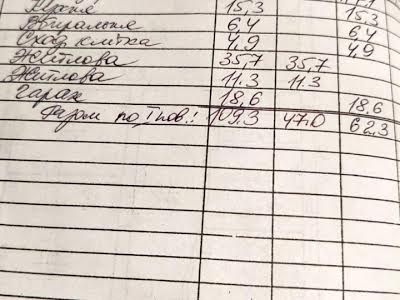 Кухня 15,3 15,3
Вбиральня 6,4 6,4
Сход. клітка 4,9 4,9
Житлова 35,7 35,7
Житлова 11.3 11.3
Гараж 18,6 18,6
Разом по I пов.: 109.3 47.0 62,3